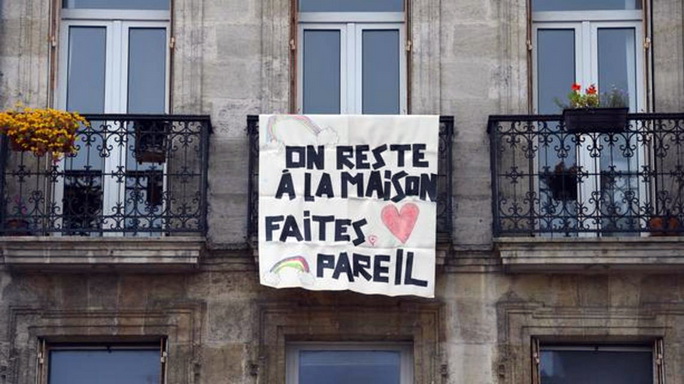 ON RESTE
Á LA MAISON
FAITES
PAREIL